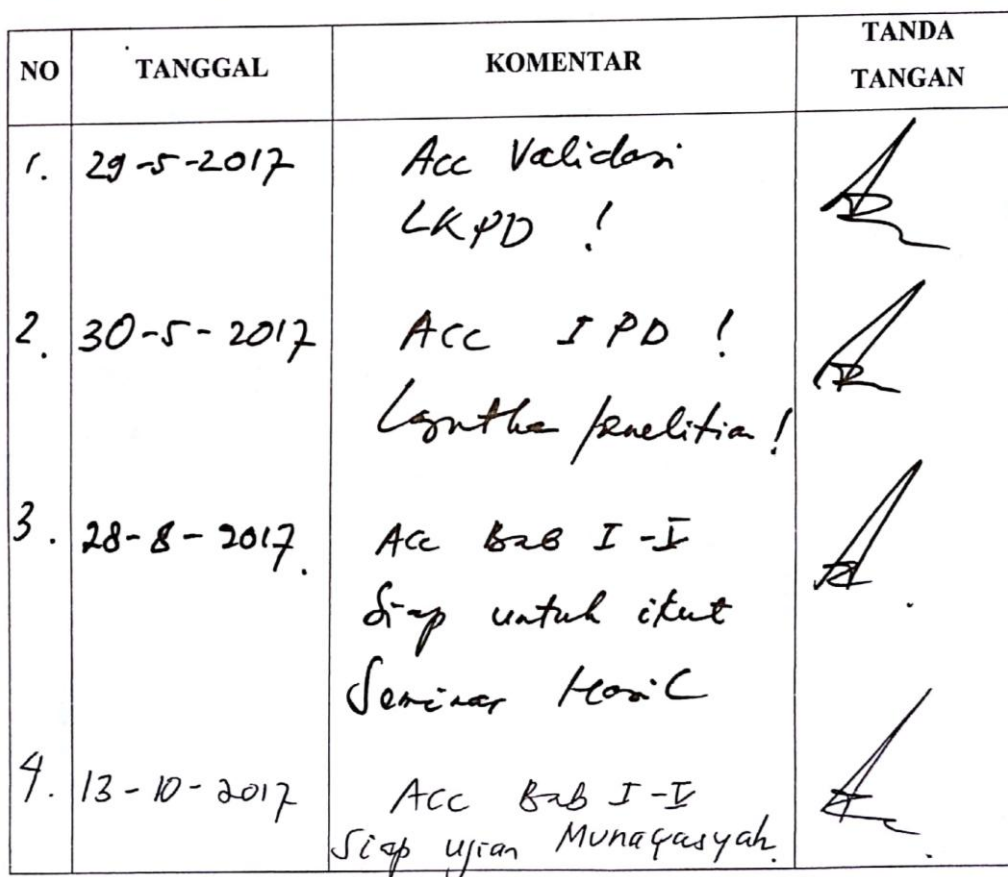 NO TANGGAL KOMENTAR TANDA TANGAN
1. 29-5-2017 Acc Validasi
LKPD !
2. 30-5-2017 Acc IPD !
Lanjutkan penelitian !
3. 28-8-2017. Acc Bab I-V
Siap untuk ikut
Seminar Hasil
4. 13-10-2017 Acc Bab I-V
Siap ujian Munaqasyah.